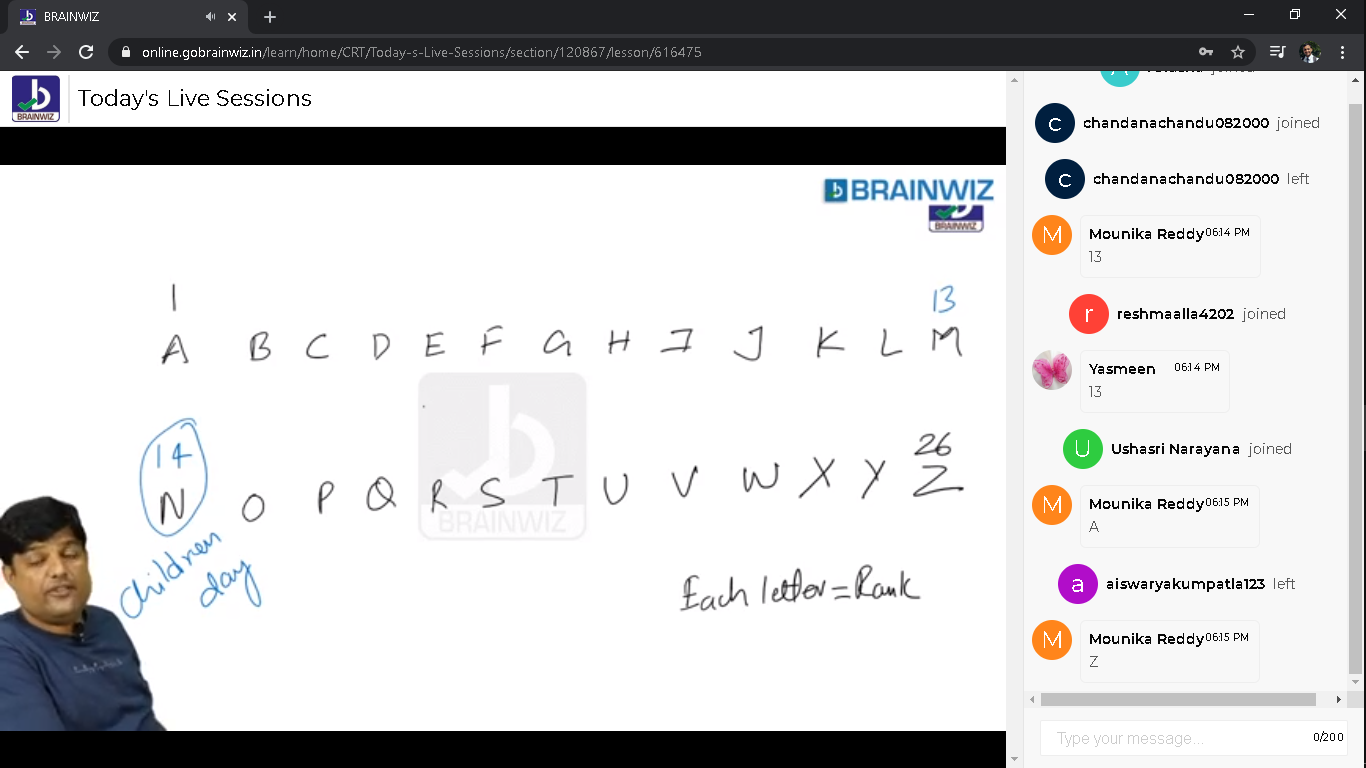 BRAINWIZ
online.gobrainwiz.in/learn/home/CRT/Today-s-Live-Sessions/section/120867/lesson/616475
BRAINWIZ
Today's Live Sessions
BRAINWIZ
BRAINWIZ
1 13
A B C D E F G H I J K L M
14 26
N O P Q R S T U V W X Y Z
BRAINWIZ
Children
day
Each letter = Rank
joined
c chandanachandu082000 joined
c chandanachandu082000 left
M Mounika Reddy 06:14 PM
13
r reshmaalla4202 joined
Yasmeen 06:14 PM
13
U Ushasri Narayana joined
M Mounika Reddy 06:15 PM
A
a aiswaryakumpatla123 left
M Mounika Reddy 06:15 PM
Z
Type your message... 0/200